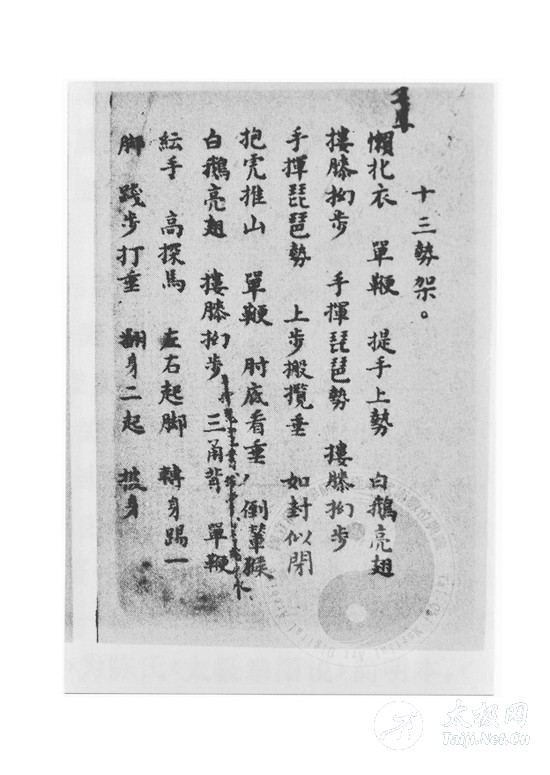 十三勢架。
懶扎衣 單鞭 提手上勢 白鵝亮翅
摟膝拗步 手揮琵琶勢 摟膝拗步
手揮琵琶勢 上步搬攬垂 如封似閉
抱虎推山 單鞭 肘底看垂 倒輦猴
白鵝亮翅 摟膝拗步 三甬背 單鞭
紜手 高探馬 左右起脚 轉身踢一
脚 踐步打垂 翻身二起 披身
太极网
Taiji.Net.Cn